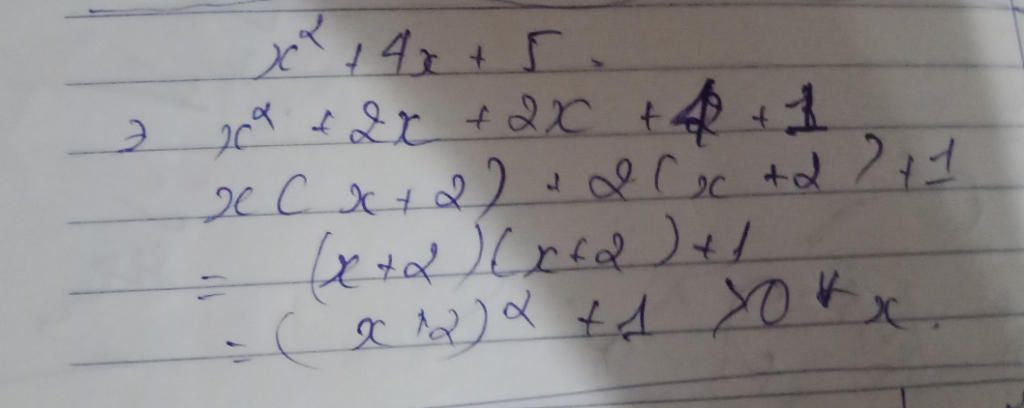 x² + 4x + 5.
⇒ x² + 2x + 2x + 4 + 1
x(x+2) + 2(x+2) + 1
= (x+2)(x+2) + 1
= (x+2)² + 1 >0 ∀ x.